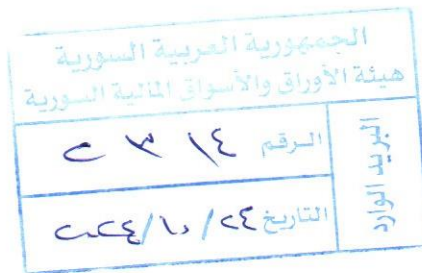 الجمهورية العربية السورية
هيئة الأوراق والأسواق المالية السورية
البريد الوارد
الرقم ٢٣١٤
التاريخ ٢٤/١٠/٢٠٢٤